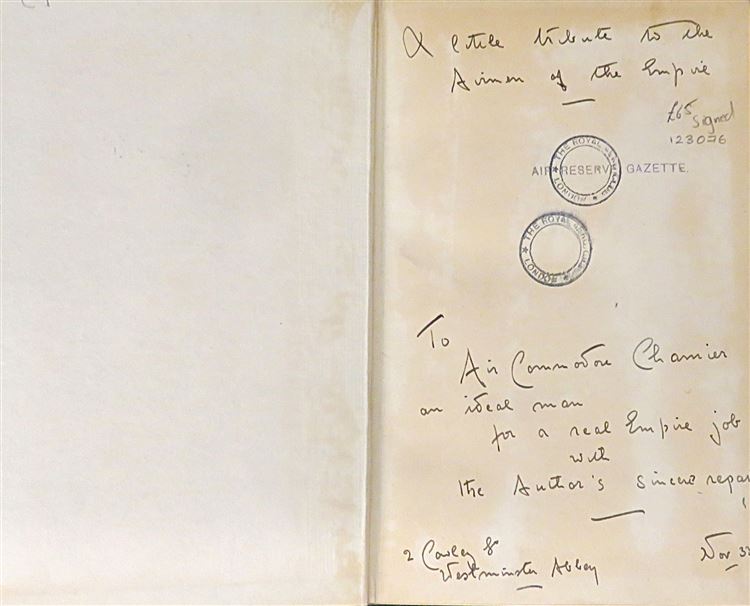 A little tribute to the
Airmen of the Empire
£65 signed
123076
AIR RESERVE GAZETTE.
THE ROYAL
LONDON
THE ROYAL
LONDON
To
Air Commodore Chamier
an ideal man
for a real Empire job
with
the Author's sincere
2 Cowley St
Westminster Abbey
Nov 33